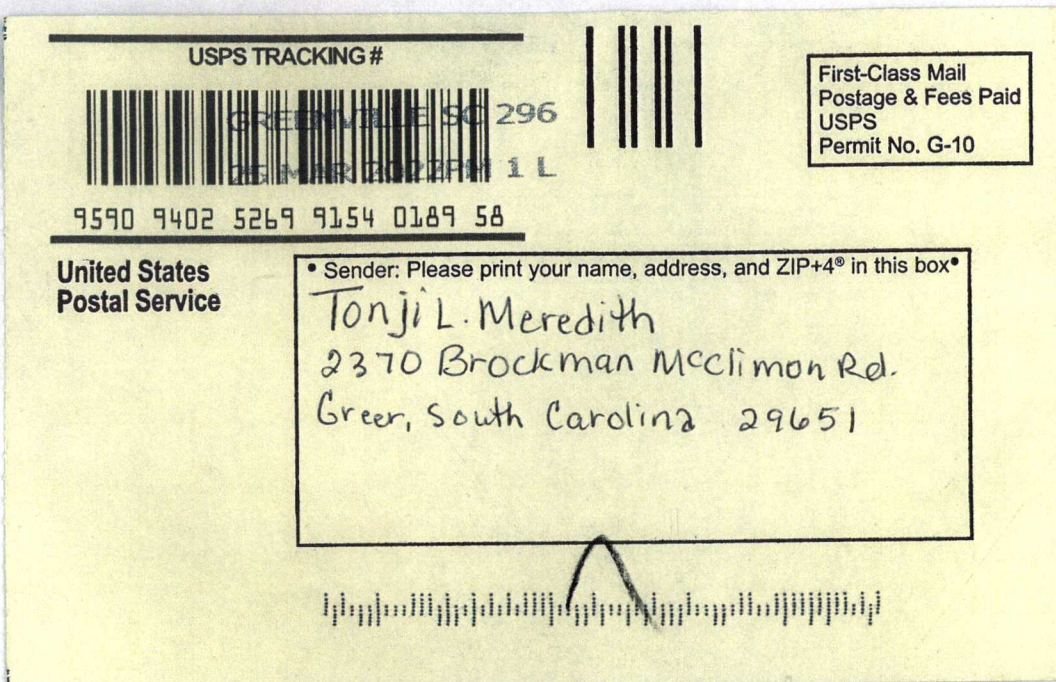 USPS TRACKING #
GREENVILLE SC 296
25 MAR 2022PM 1 L
9590 9402 5269 9154 0189 58
First-Class Mail
Postage & Fees Paid
USPS
Permit No. G-10
United States
Postal Service
• Sender: Please print your name, address, and ZIP+4® in this box•
Tonji L. Meredith
2370 Brockman McClimon Rd.
Greer, South Carolina 29651